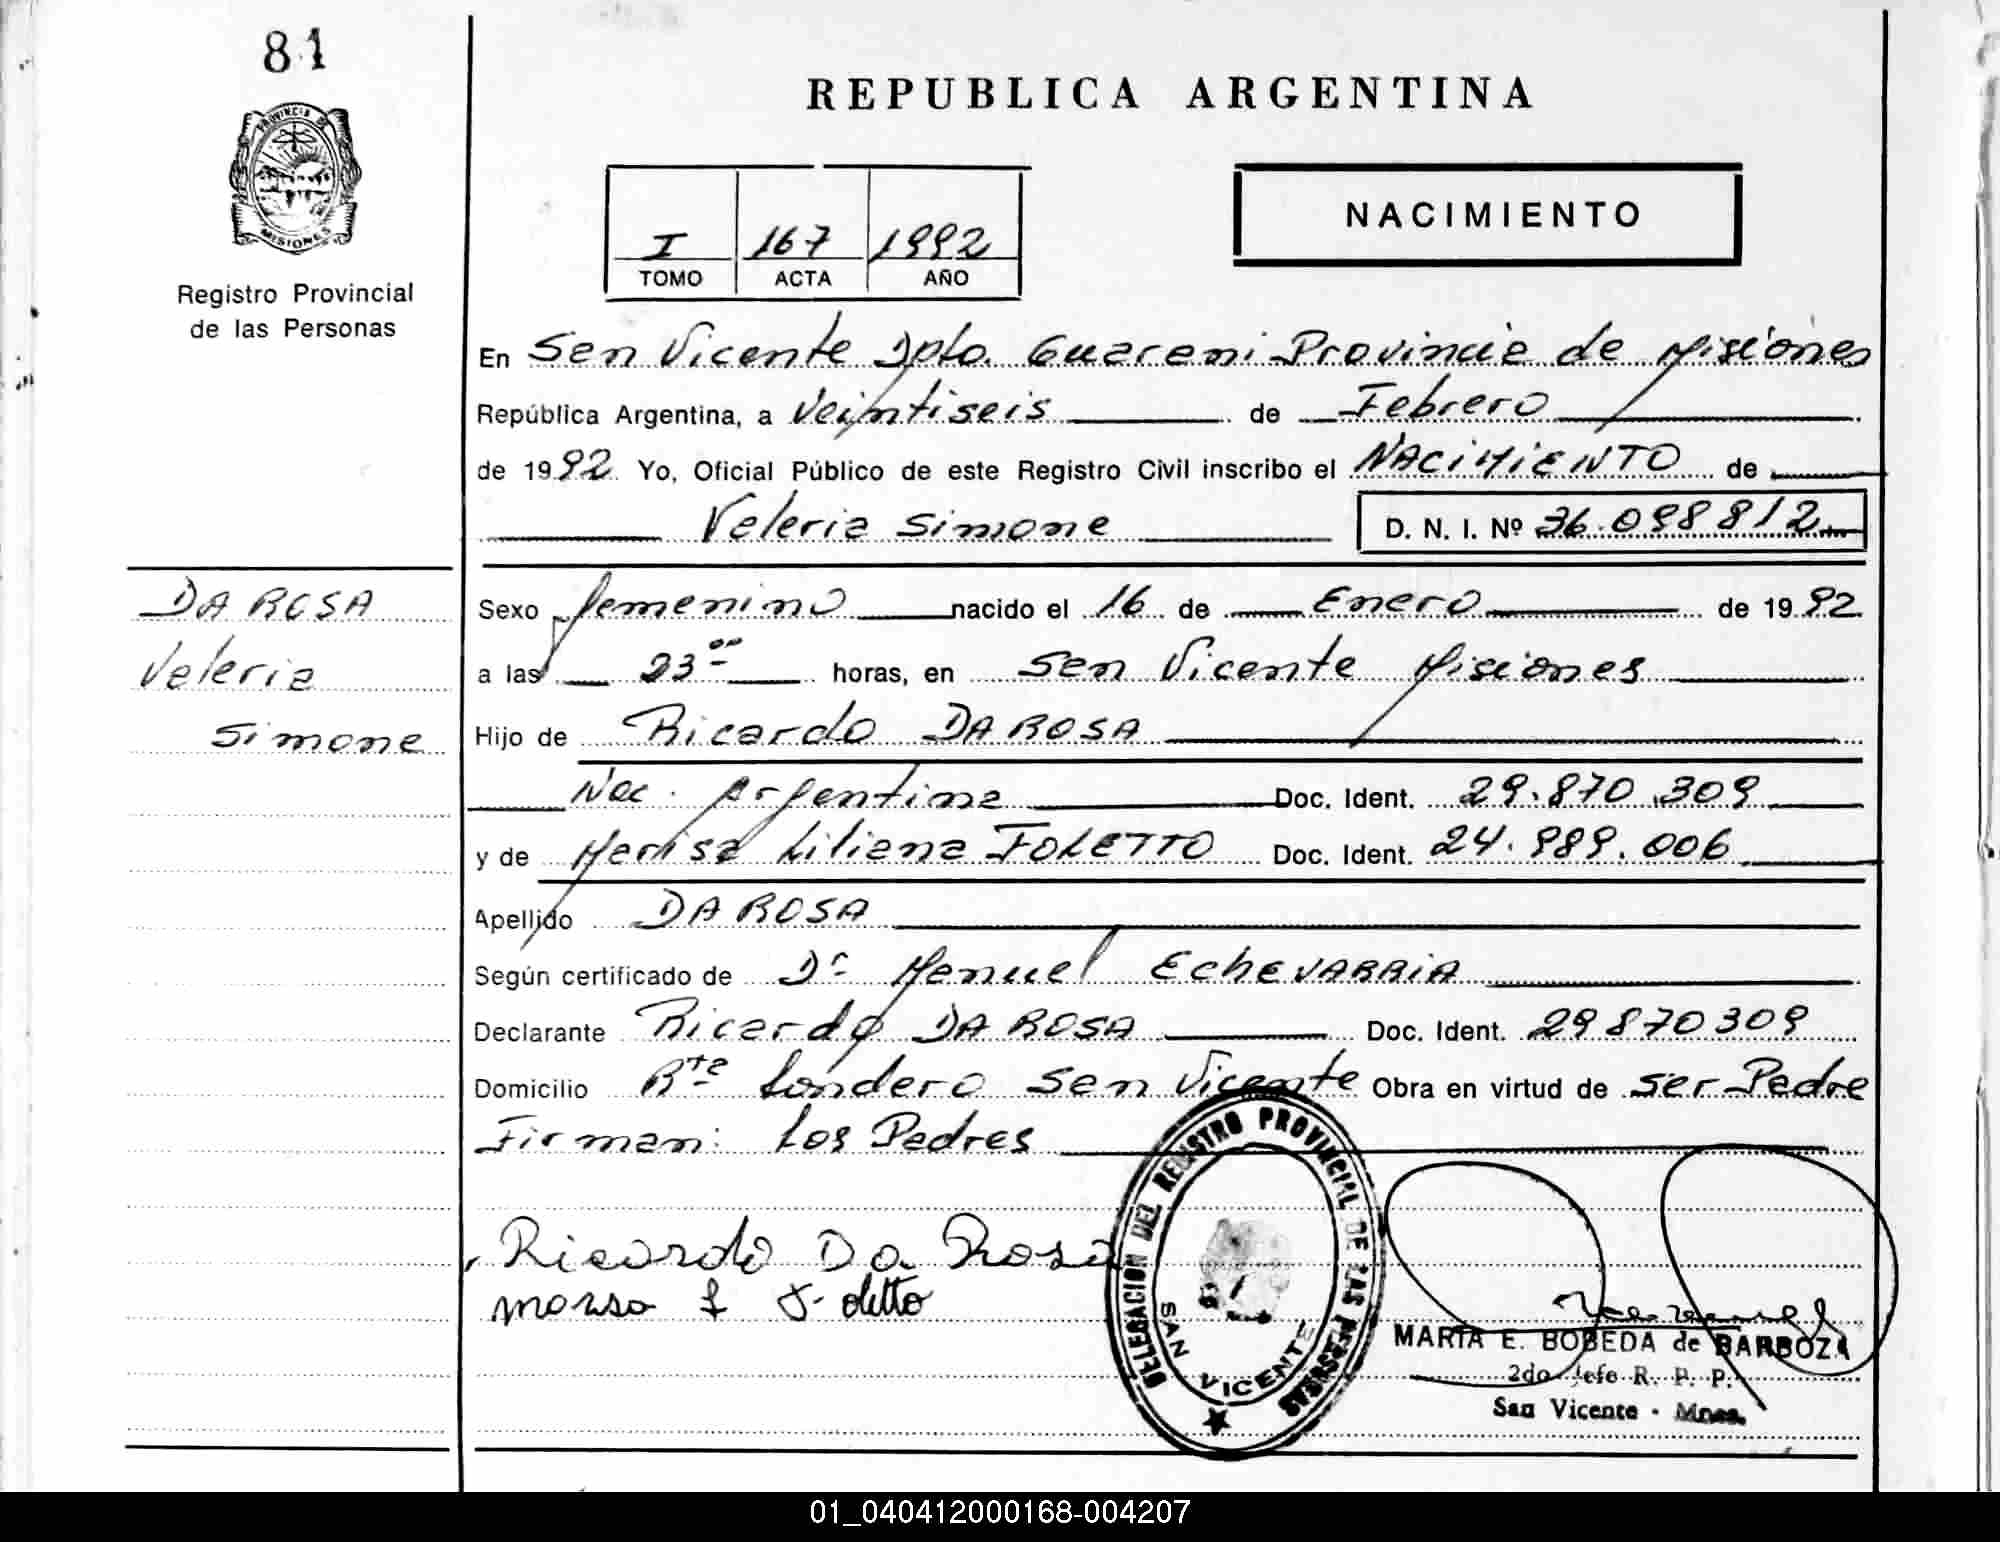 81
PROVINCIA DE
MISIONES
Registro Provincial
de las Personas
REPUBLICA ARGENTINA
I 167 1992
TOMO ACTA AÑO
NACIMIENTO
En San Vicente Dpto. Guarani Provincia de Misiones
República Argentina, a Veintiseis de Febrero
de 1992. Yo, Oficial Público de este Registro Civil inscribo el NACIMIENTO de
Valeria Simone D. N. I. Nº 36.098812
DA ROSA
Valeria
Simone
Sexo femenino nacido el 16 de Enero de 1992
a las 23 ºº horas, en San Vicente Misiones
Hijo de Ricardo DA ROSA
Nac. Argentina Doc. Ident. 29.870.309
y de Marisa Liliana FOLETTO Doc. Ident. 24.989.006
Apellido DA ROSA
Según certificado de Dr Manuel EchEVARRiA
Declarante Ricardo DA ROSA Doc. Ident. 29870309
Domicilio Rte Londero San Vicente Obra en virtud de ser Padre
Firman: Los Padres
Ricardo Da Rosa
DELEGACION DEL REGISTRO PROVINCIAL DE LAS PERSONAS
SAN VICENTE
MARIA E. BOBEDA de BARBOZA
2do Jefe R. P. P.
San Vicente - Mnes.
01_040412000168-004207